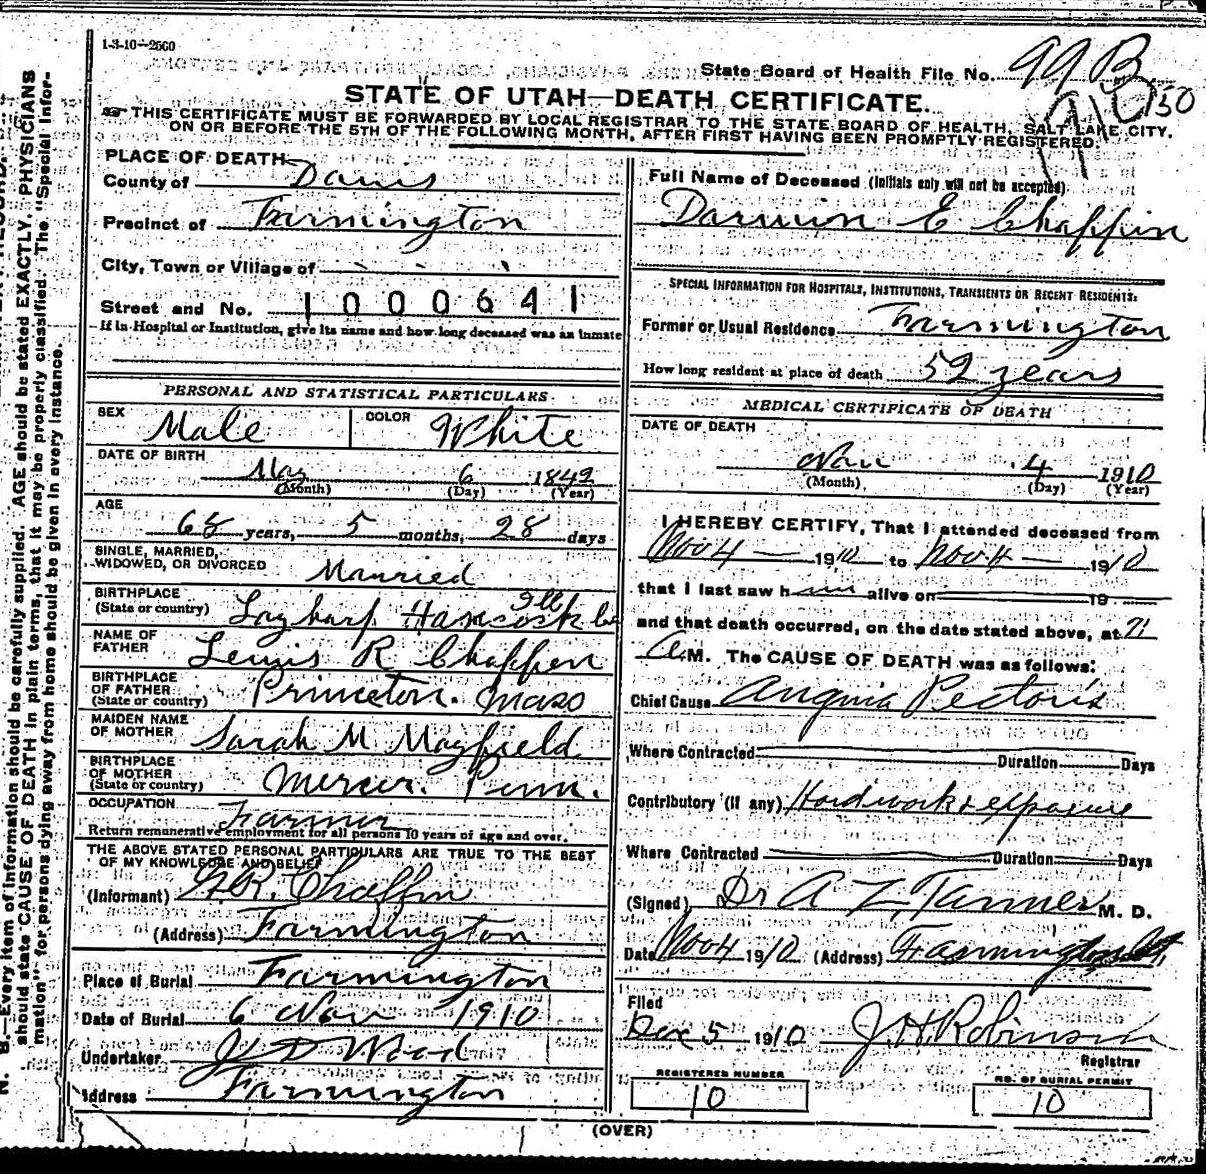 1-3-10-2560
State Board of Health File No. 99 B
1910 150
STATE OF UTAH—DEATH CERTIFICATE.
☞ THIS CERTIFICATE MUST BE FORWARDED BY LOCAL REGISTRAR TO THE STATE BOARD OF HEALTH, SALT LAKE CITY,
ON OR BEFORE THE 5TH OF THE FOLLOWING MONTH, AFTER FIRST HAVING BEEN PROMPTLY REGISTERED.
PLACE OF DEATH
County of Davis
Precinct of Farmington
City, Town or Village of
Street and No. 1000641
If in Hospital or Institution, give its name and how long deceased was an inmate
PERSONAL AND STATISTICAL PARTICULARS
SEX Male COLOR White
DATE OF BIRTH
May 6 1842
(Month) (Day) (Year)
AGE
68 years, 5 months, 28 days
SINGLE, MARRIED,
WIDOWED, OR DIVORCED Married
BIRTHPLACE
(State or country) Layharp Hancock Co Ill
NAME OF
FATHER Lewis R Chaffin
BIRTHPLACE
OF FATHER
(State or country) Princeton. Mass
MAIDEN NAME
OF MOTHER Sarah M Mayfield
BIRTHPLACE
OF MOTHER
(State or country) Mercer. Penn.
OCCUPATION Farmer
Return remunerative employment for all persons 10 years of age and over.
THE ABOVE STATED PERSONAL PARTICULARS ARE TRUE TO THE BEST
OF MY KNOWLEDGE AND BELIEF
(Informant) R. Chaffin
(Address) Farmington
Place of Burial Farmington
Date of Burial 6 Nov 1910
Undertaker Wood
Address Farmington
Full Name of Deceased (Initials only will not be accepted)
Darwin E Chaffin
SPECIAL INFORMATION FOR HOSPITALS, INSTITUTIONS, TRANSIENTS OR RECENT RESIDENTS:
Former or Usual Residence Farmington
How long resident at place of death 52 years
MEDICAL CERTIFICATE OF DEATH
DATE OF DEATH
Nov 4 1910
(Month) (Day) (Year)
I HEREBY CERTIFY, That I attended deceased from
Nov 4 1910 to Nov 4 1910
that I last saw him alive on 19
and that death occurred, on the date stated above, at 71
A.M. The CAUSE OF DEATH was as follows:
Chief Cause Anginia Pectoris
Where Contracted Duration Days
Contributory (if any) Hardwork & exposure
Where Contracted Duration Days
(Signed) Dr A Z, Tanner M. D.
Date Nov 4 1910 (Address) Farmington Ut.
Filed
Dec 5 1910 J. H. Robinson
Registrar
REGISTERED NUMBER
10
NO. OF BURIAL PERMIT
10
(OVER)
N. B.—Every item of information should be carefully supplied. AGE should be stated EXACTLY. PHYSICIANS
should state CAUSE OF DEATH in plain terms, that it may be properly classified. The "Special Infor-
mation" for persons dying away from home should be given in every instance.